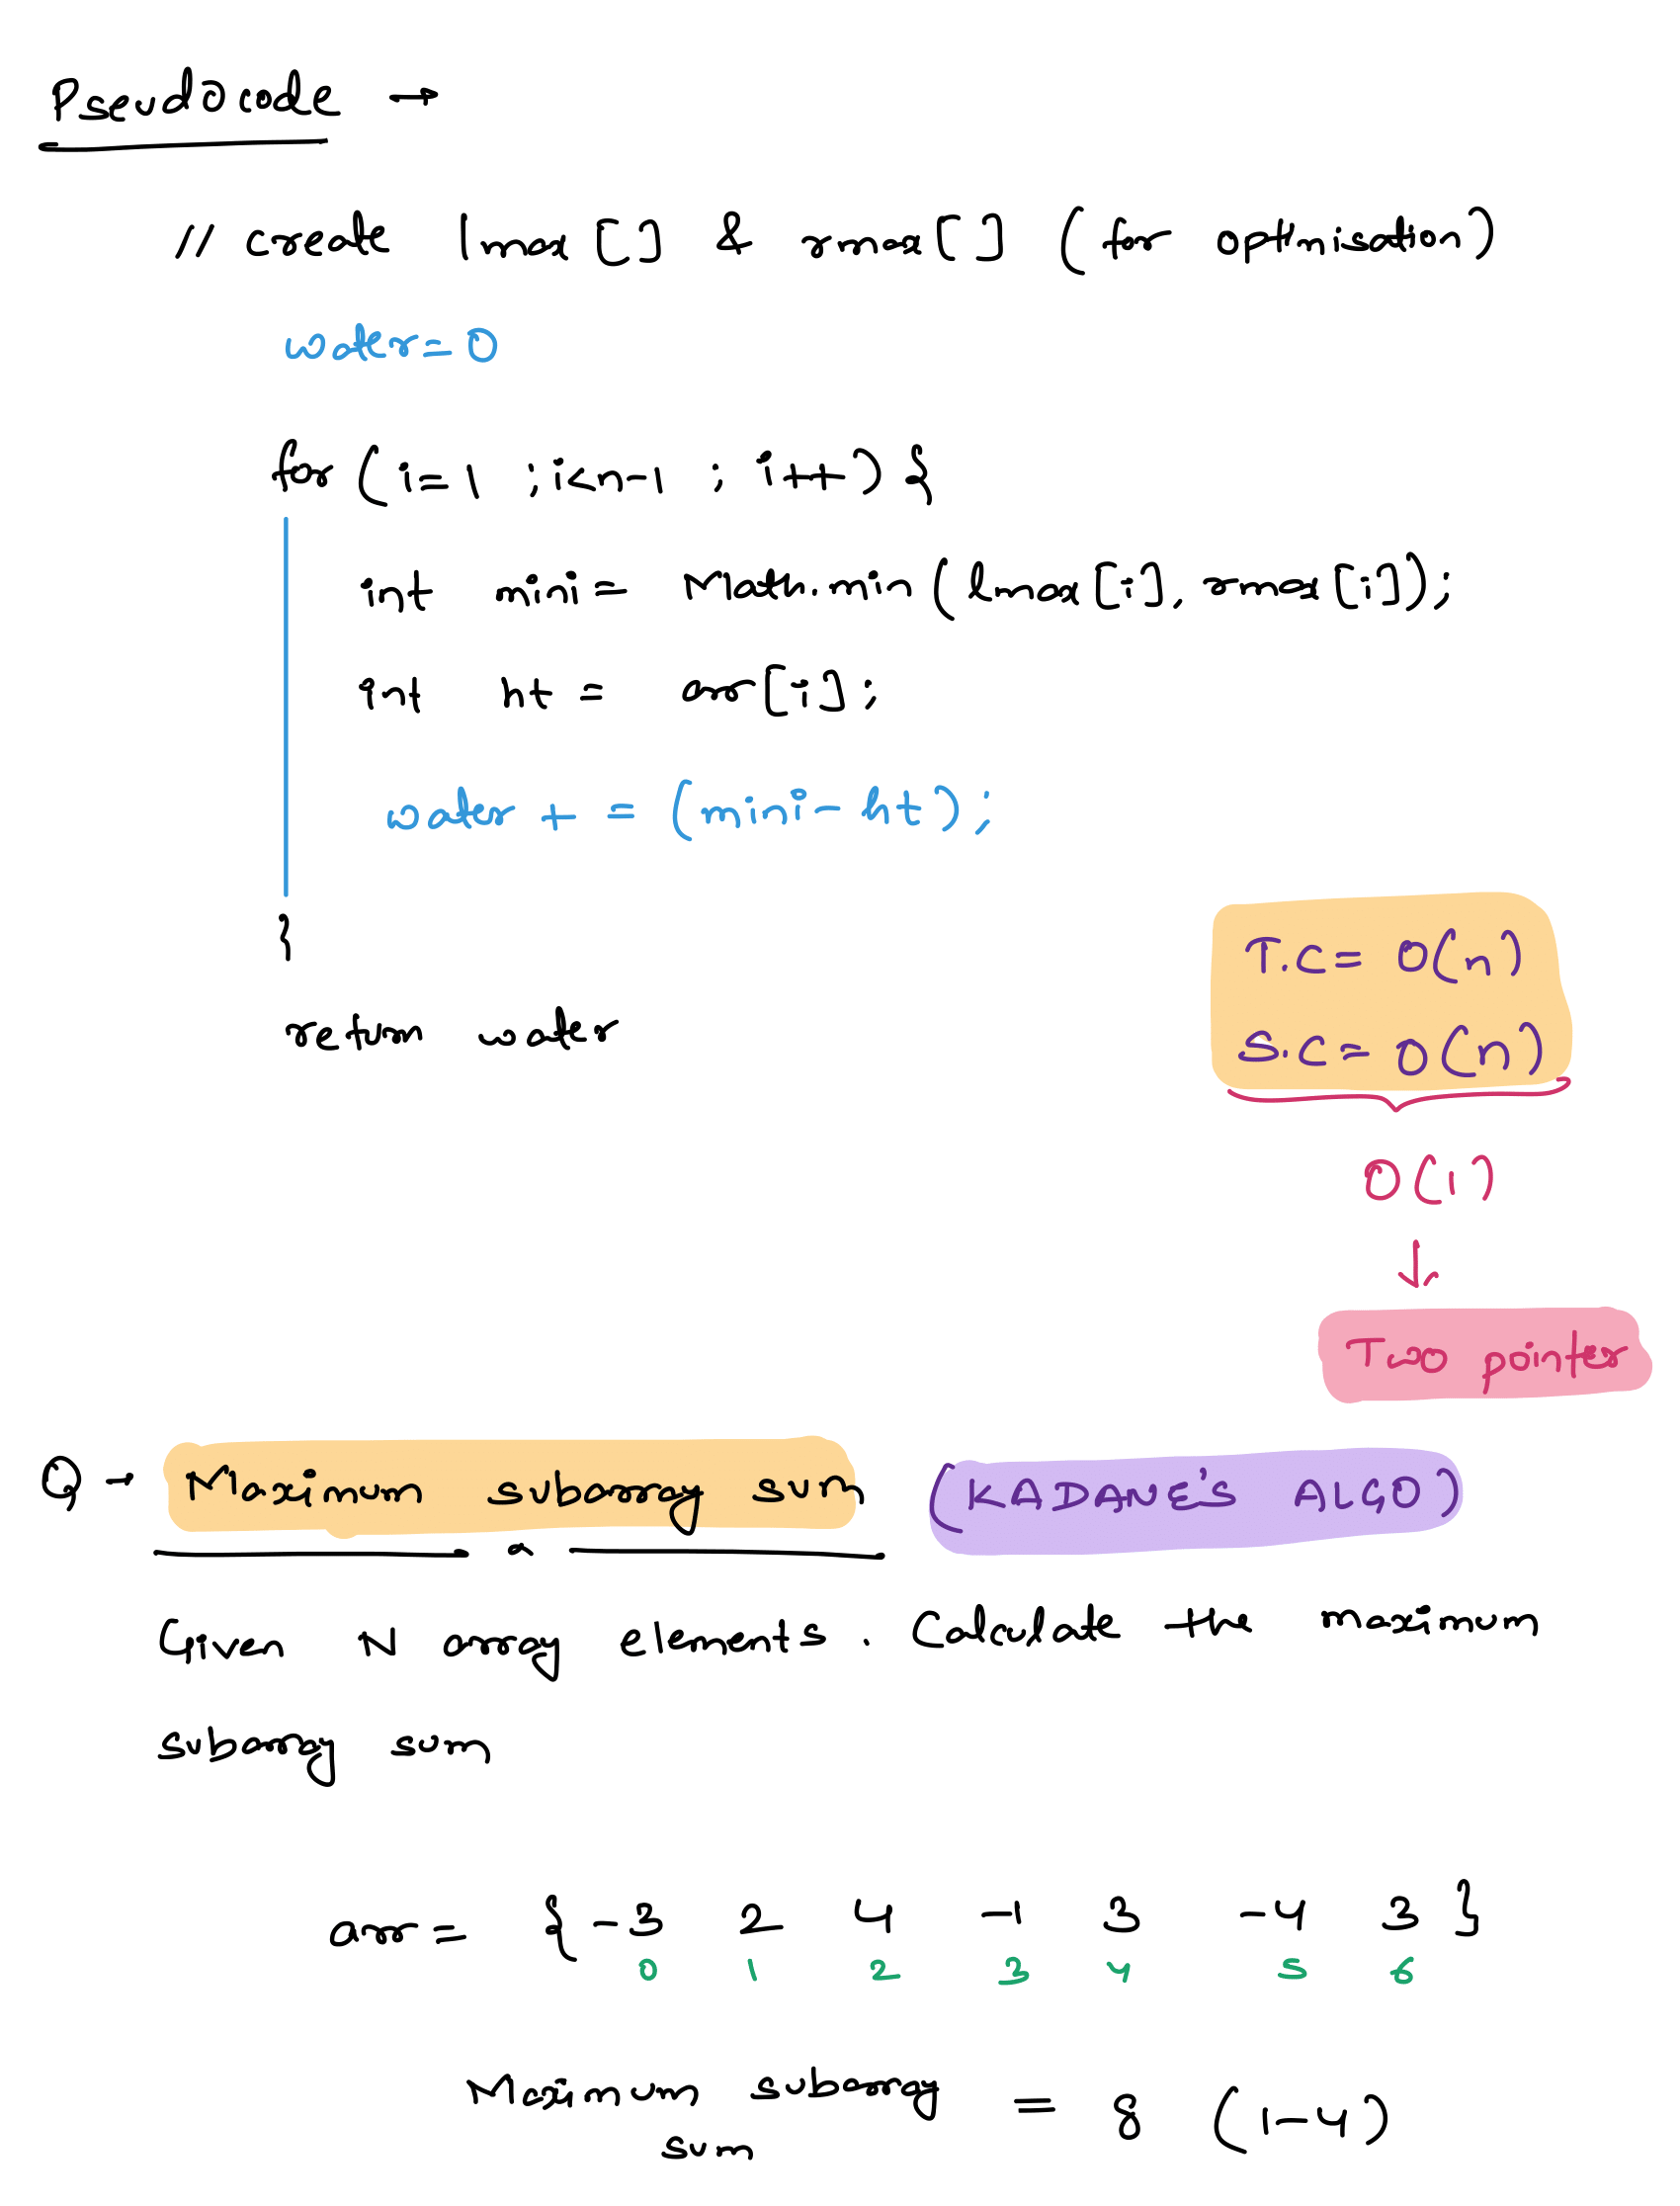 Pseudocode →
// create lmax[] & rmax[] (for optimisation)
water=0
for (i=1 ; i<n-1 ; i++) {
int mini= Math.min(lmax[i], rmax[i]);
int ht = arr[i];
water += (mini-ht);
}
return water
T.C= O(n)
S.C= O(n)
O(1)
↓
Two pointer
Q → Maximum subarray sum (KADANE'S ALGO)
Given N array elements. Calculate the maximum
subarray sum
arr= { -3 2 4 -1 3 -4 3 }
0 1 2 3 4 5 6
Maximum subarray = 8 (1-4)
sum